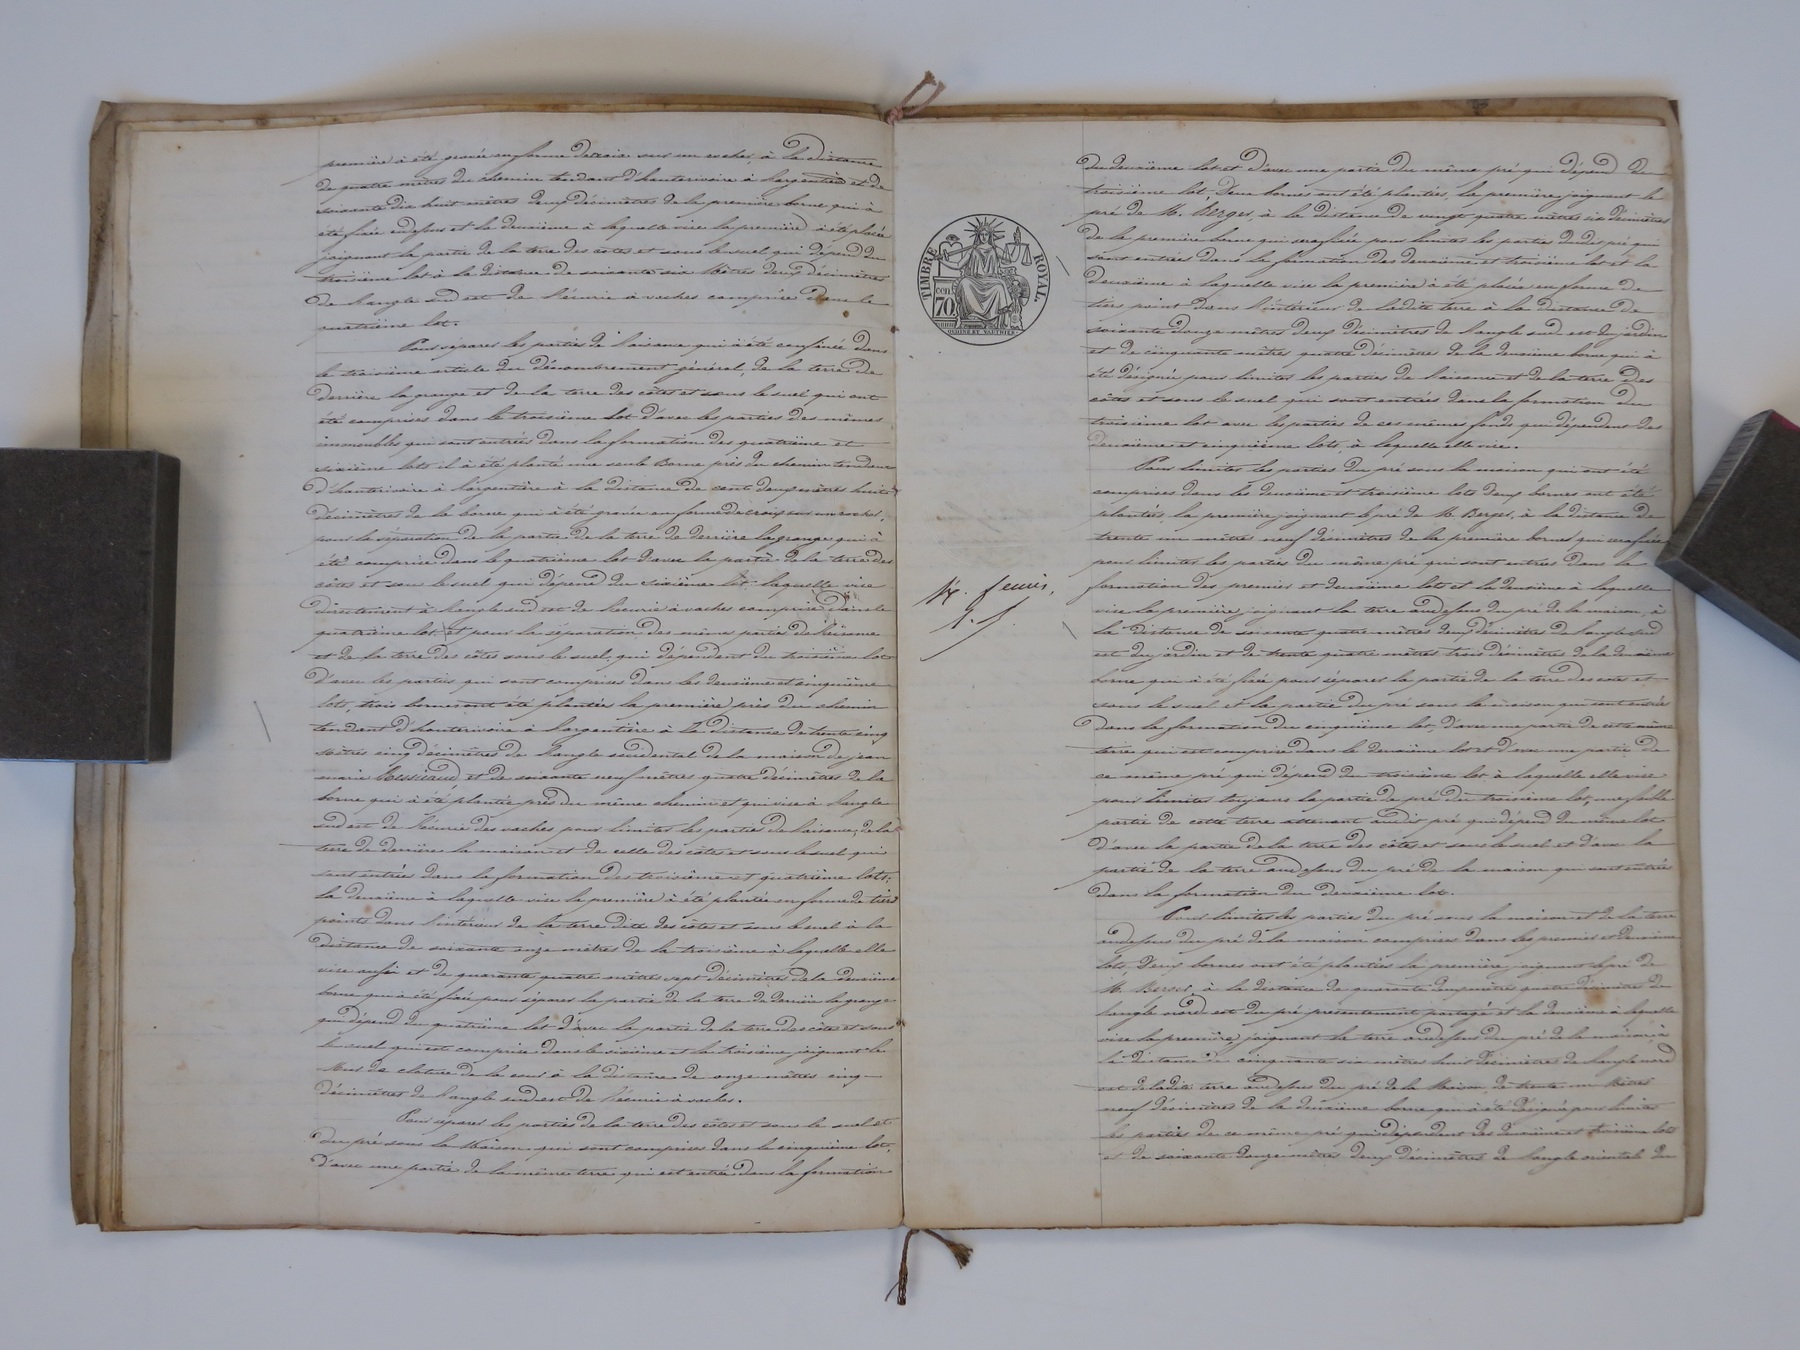 première à été gravée en forme de croix sur un rocher, à la distance
de quatre mètres du chemin tendant d'hauterivoire à l'argentière et de
soixante dix huit mètres deux décimètres de la première borne qui à
été fixée en dessus et la deuxième à laquelle vise la première à été placée
joignant la partie de la terre des côtes et sous le suel qui dépend du
troisième lot à la distance de soixante six Mètres deux décimètres
de l'angle sud est de l'écurie à vaches comprise dans le
quatrième lot.
Pour séparer les parties de l'aisance qui à été confinée dans
le troisième article du dénombrement général, de la terre de
derrière la grange et de la terre des côtes et sous le suel qui ont
été comprises dans le troisième lot d'avec les parties des mêmes
immeubles qui sont entrées dans la formation des quatrième et
sixième lots il à été planté une seule Borne près du chemin tendant
d'hauterivoire à l'argentière à la distance de cent deux mètres huit
décimètres de la borne qui à été gravée en forme de croix sur un rocher,
pour la séparation de la partie de la terre de derrière la grange qui à
été comprise dans le quatrième lot d'avec la partie de la terre des
côtes et sous le suel qui dépend du sixième lot laquelle vise
directement à l'angle sud est de l'écurie à vaches comprise dans le
quatrième lot. et pour la séparation des même parties de l'aisance
et de la terre des côtes sous le suel, qui dépendent du troisième lot
d'avec les parties qui sont comprises dans les deuxième et cinquième
lots, trois bornes ont été plantées la première près du chemin
tendant d'hauterivoire à l'argentière à la distance de trente cinq
mètres cinq décimètres de l'angle occidental de la maison de jean
marie et de soixante neuf mètres quatre décimètres de la
borne qui à été plantée près du même chemin et qui vise à l'angle
sud est de l'écurie des vaches pour limiter les parties de l'aisance, de la
terre de derrière la maison et de celle des côtes et sous le suel qui
sont entrées dans la formation des troisième et quatrième lots;
la deuxième à laquelle vise la première à été plantée en forme de tiers
points dans l'intérieur de la terre dite des côtes et sous le suel à la
distance de soixante onze mètres de la troisième à laquelle elle
vise aussi et de quarante quatre mètres sept décimètres de la deuxième
borne qui à été fixée pour séparer la partie de la terre de derrière la grange
qui dépend du quatrième lot d'avec la partie de la terre des côtes et sous
le suel qui est comprise dans le sixième et la troisième joignant le
Mur de cloture de la cour à la distance de onze mètres cinq
décimètres de l'angle sud est de l'écurie à vaches.
Pour séparer les parties de la terre des côtes et sous le suel et
du pré sous la Maison qui sont comprises dans le cinquième lot,
d'avec une partie de la même terre qui est entrée dans la formation
TIMBRE ROYAL.
cen
70
du deuxième lot et d'avec une partie du même pré qui dépend du
troisième lot. Deux bornes ont été plantées, la première joignant le
pré de M. Berger, à la distance de vingt quatre mètres six décimètres
de la première borne qui sera fixée pour limiter les parties dudit pré qui
sont entrées dans la formation des deuxième et troisième lot et la
deuxième à laquelle vise la première à été placée en forme de
tiers point dans l'intérieur de ladite terre à la distance de
soixante douze mètres deux décimètres de l'angle sud est du jardin
et de cinquante mètres quatre décimètres de la deuxième borne qui à
été désignée pour limiter les parties de l'aisance et de la terre des
côtes et sous le suel qui sont entrées dans la formation du
troisième lot avec les parties de ces mêmes fonds qui dépendent des
deuxième et cinquième lots, à laquelle elle vise.
Pour limiter les parties du pré sous la maison qui ont été
comprises dans les deuxième et troisième lots deux bornes ont été
plantées, la première joignant le pré de M. Berger, à la distance de
trente un mètres neuf décimètres de la première borne qui sera fixée
pour limiter les parties du même pré qui sont entrées dans la
formation des premier et deuxième lots et la deuxième à laquelle
vise la première, joignant la terre au dessus du pré de la maison, à
la distance de soixante quatre mètres deux décimètres de l'angle sud
est du jardin et de trente quatre mètres trois décimètres de la deuxième
borne qui à été fixée pour séparer la partie de la terre des côtes et
sous le suel et la partie du pré sous la maison qui sont entrées
dans la formation du cinquième lot, d'avec une partie de cette même
terre qui est comprise dans le deuxième lot et d'avec une partie de
ce même pré qui dépend du troisième lot à laquelle elle vise
pour limiter toujours la partie de pré du troisième lot, une faible
partie de cette terre attenant audit pré qui dépend du même lot
d'avec la partie de la terre des côtes et sous le suel et d'avec la
partie de la terre au dessus du pré de la maison qui sont entrées
dans la formation du deuxième lot.
Pour limiter les parties du pré sous la maison et de la terre
au dessus du pré de la maison comprises dans les premier et deuxième
lots. Deux bornes ont été plantées la première joignant le pré de
M. Berger, à la distance de quarante deux mètres quatre décimètres de
l'angle nord est du pré présentement partagé et la deuxième à laquelle
vise la première joignant la terre au dessus du pré de la maison, à
la distance de cinquante six mètres huit décimètres de l'angle nord
est de ladite terre au dessus du pré de la Maison de trente un Mètres
neuf décimètres de la deuxième borne qui à été désignée pour limiter
les parties de ce même pré qui dépendent des deuxième et troisième lots
et de soixante douze mètres deux décimètres de l'angle orientale du